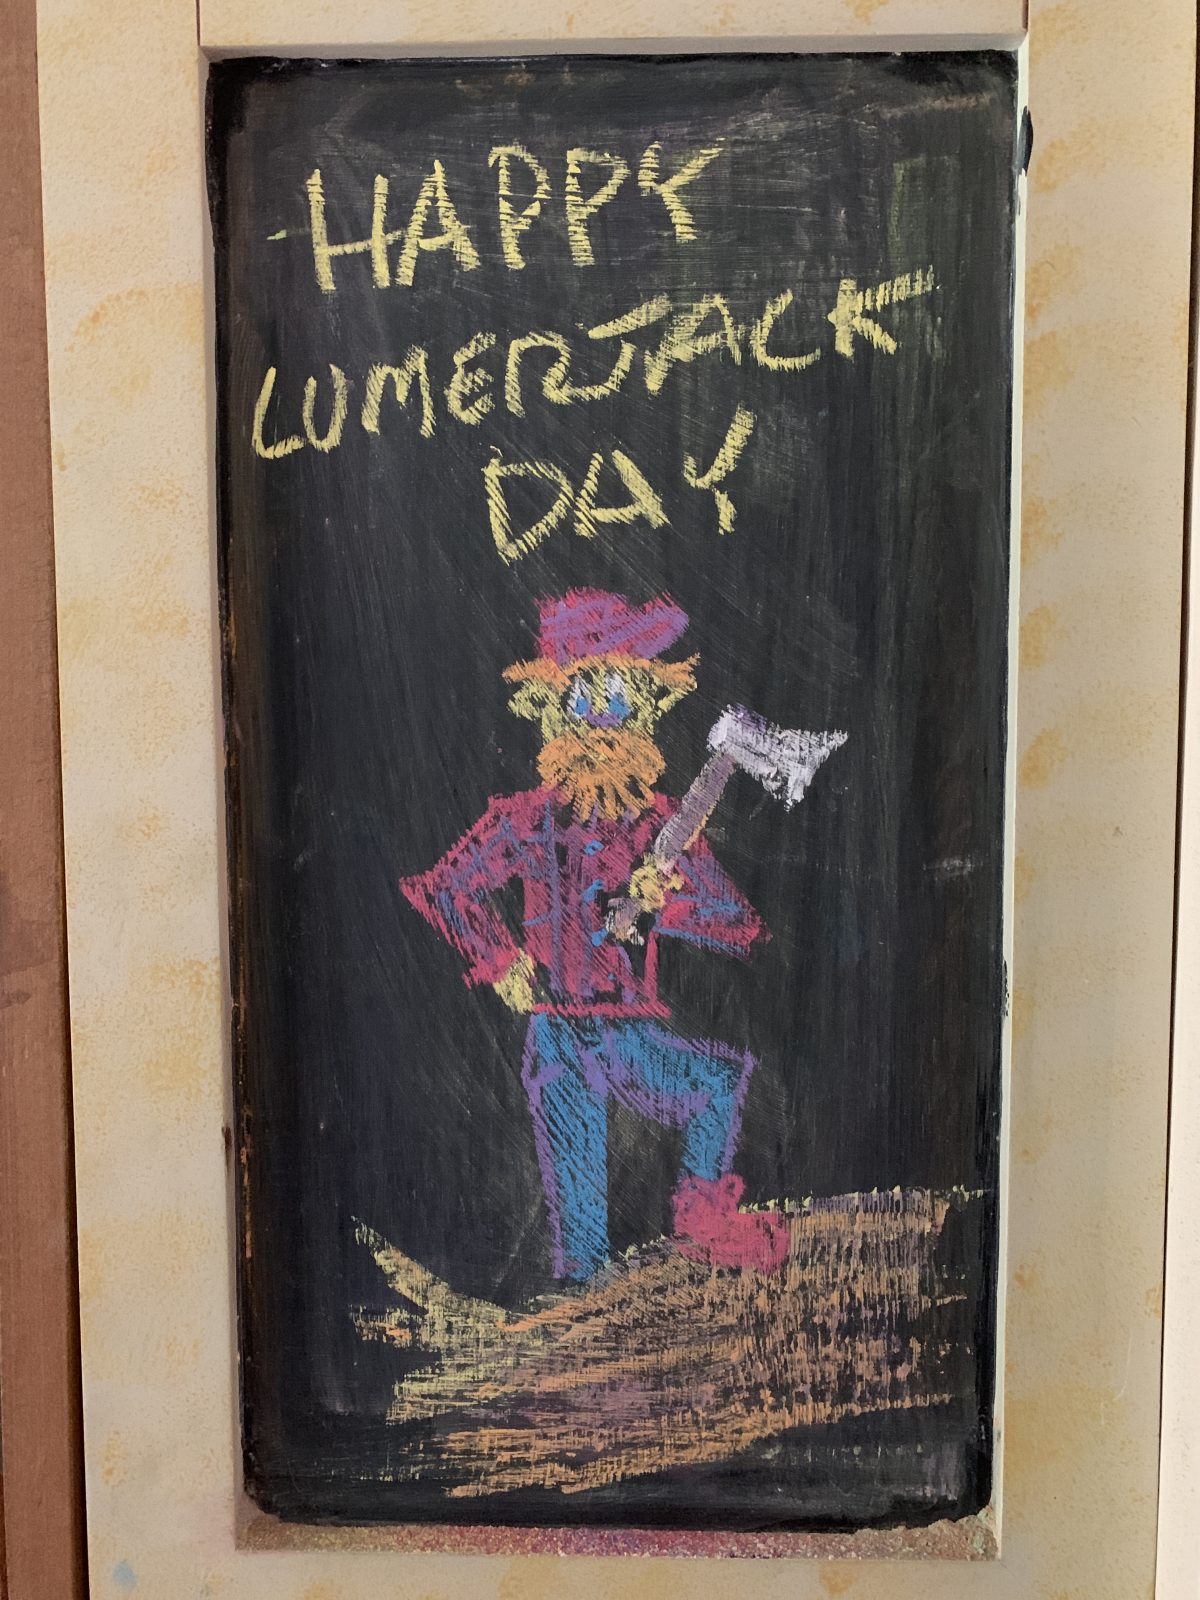 HAPPY
LUMERJACK
DAY